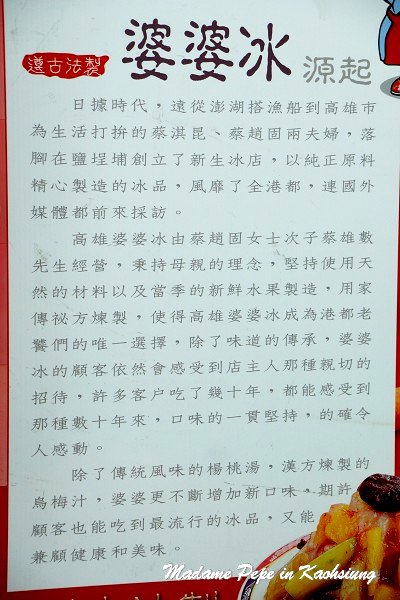 遵古法製
婆婆冰 源起
日據時代，遠從澎湖搭漁船到高雄市
為生活打拚的蔡淇昆、蔡趙固兩夫婦，落
腳在鹽埕埔創立了新生冰店，以純正原料
精心製造的冰品，風靡了全港都，連國外
媒體都前來採訪。
高雄婆婆冰由蔡趙固女士次子蔡雄數
先生經營，秉持母親的理念，堅持使用天
然的材料以及當季的新鮮水果製造，用家
傳祕方煉製，使得高雄婆婆冰成為港都老
饕們的唯一選擇，除了味道的傳承，婆婆
冰的顧客依然會感受到店主人那種親切的
招待，許多客户吃了幾十年，都能感受到
那種數十年來，口味的一貫堅持，的確令
人感動。
除了傳統風味的楊桃湯，漢方煉製的
烏梅汁，婆婆更不斷增加新口味，期許
顧客也能吃到最流行的冰品，又能
兼顧健康和美味。
Madame Pepe in Kaohsiung